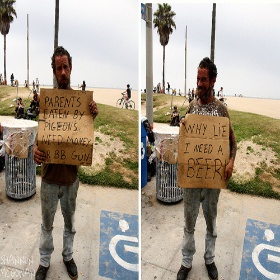 PARENTS
EATEN BY
PIGEONS.
NEED MONEY
4 BB GUN
WHY LIE
I NEED A
BEER